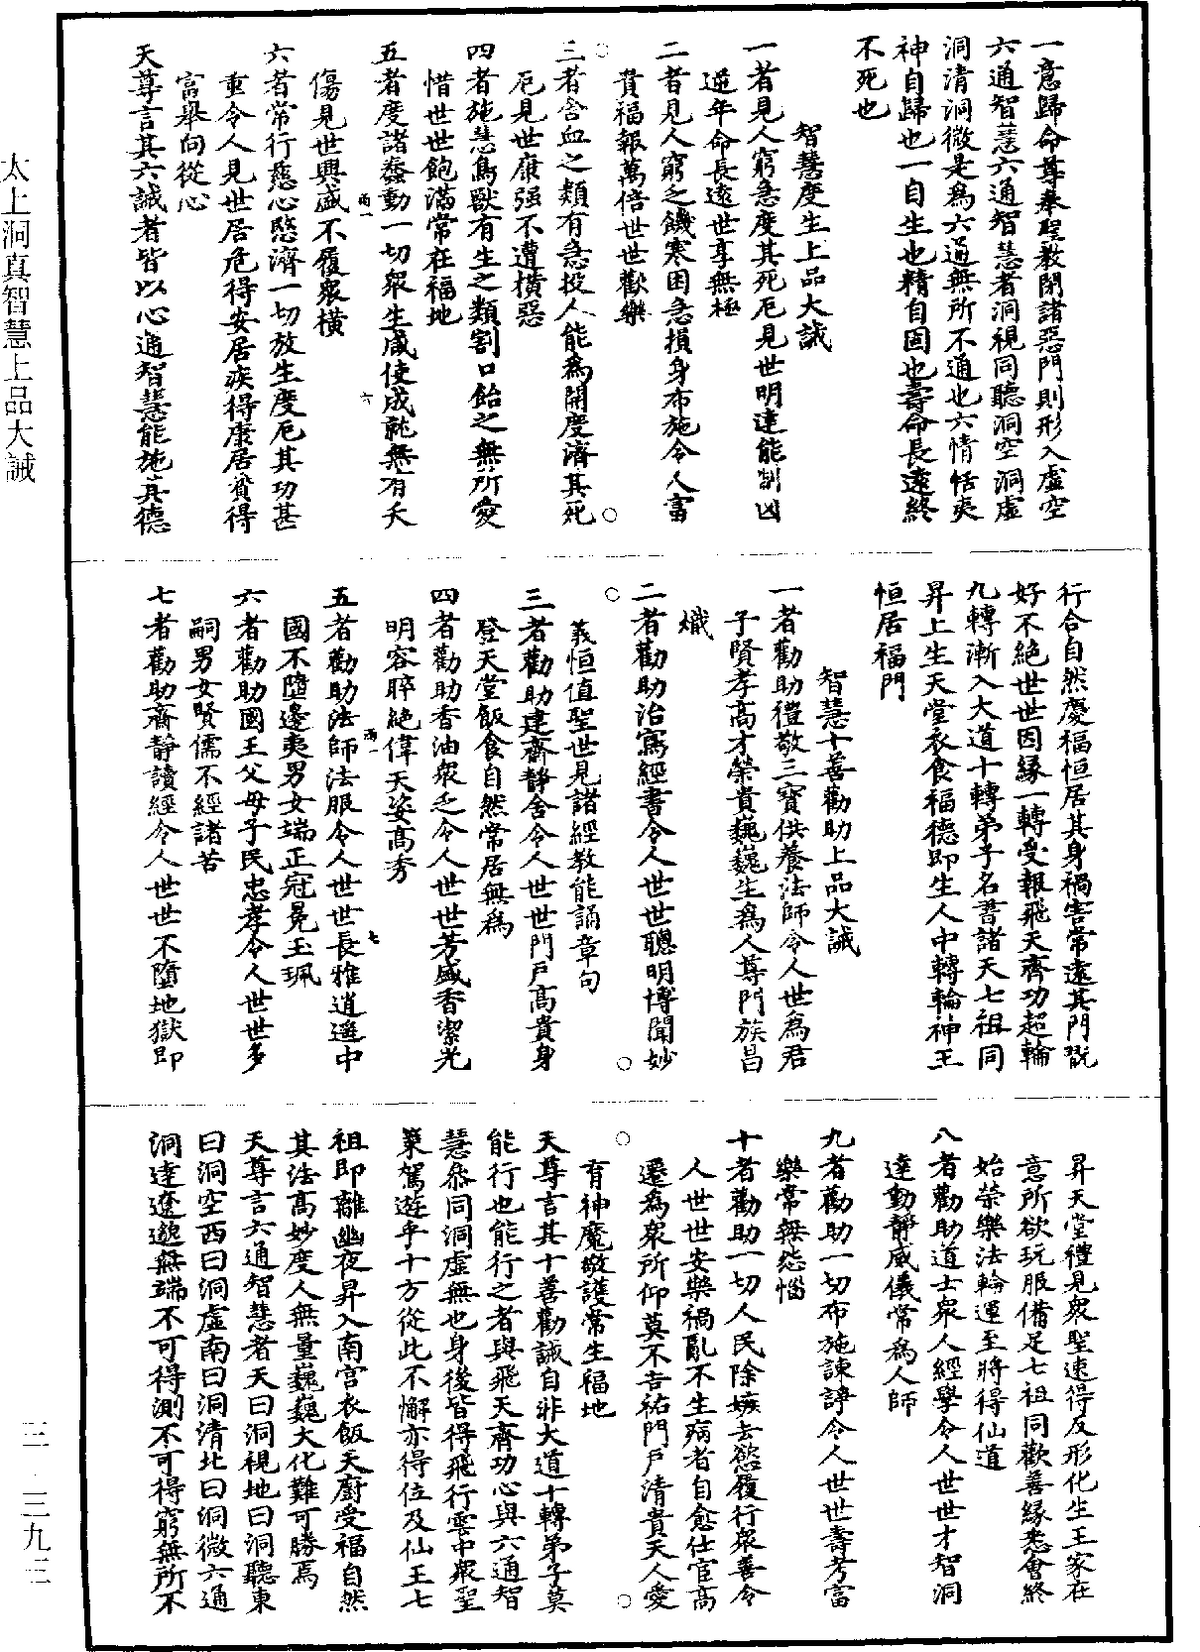 一意歸命尊奉聖教閉諸惡門則形入虛空
六通智慧六通智慧者洞視同聽洞空洞虛
洞清洞微是為六通無所不通也六情恬夷
神自歸也一自生也精自固也壽命長遠終
不死也
智慧度生上品大誡
一者見人窮急度其死厄見世明達能制凶
逆年命長遠世享無極
二者見人窮乏饑寒困急損身布施令人富
貴福報萬倍世世歡樂
三者含血之類有急投人能為開度濟其死
厄見世康强不遭橫惡
四者施慧鳥獸有生之類割口飴之無所愛
惜世世飽滿常在福地
五者度諸蠢動一切衆生咸使成就無有夭
傷見世興盛不履衆橫
六者常行慈心愍濟一切放生度厄其功甚
重令人見世居危得安居疾得康居貧得
富舉向從心
天尊言其六誡者皆以心通智慧能施其德
行合自然慶福恒居其身禍害常遠其門既
好不絕世世因緣一轉受報飛天齊功超輪
九轉漸入大道十轉弟子名書諸天七祖同
昇上生天堂衣食福德即生人中轉輪神王
恒居福門
智慧十善勸助上品大誡
一者勸助禮敬三寶供養法師令人世為君
子賢孝高才榮貴巍巍生為人尊門族昌
熾
二者勸助治寫經書令人世世聰明博聞妙
義恒值聖世見諸經教能誦章句
三者勸助建齋靜舍令人世世門戶高貴身
登天堂飯食自然常居無為
四者勸助香油衆乏令人世世芳盛香潔光
明容睟絕偉天姿高秀
五者勸助法師法服令人世世長雅逍遥中
國不墮邊夷男女端正冠冕玉珮
六者勸助國王父母子民忠孝令人世世多
嗣男女賢儒不經諸苦
七者勸助齋靜讀經令人世世不墮地獄即
昇天堂禮見衆聖速得反形化生王家在
意所欲玩服備足七祖同歡善緣悉會終
始榮樂法輪運至將得仙道
八者勸助道士衆人經學令人世世才智洞
達動靜威儀常為人師
九者勸助一切布施諫諍令人世世壽考富
樂常無怨惱
十者勸助一切人民除嫉去慾履行衆善令
人世世安樂禍亂不生病者自愈仕宦高
遷為衆所仰莫不吉祐門戶清貴天人愛
有神魔敬護常生福地
天尊言其十善勸誡自非大道十轉弟子莫
能行也能行之者與飛天齊功心與六通智
慧叅同洞虛無也身後皆得飛行雲中衆聖
策駕遊乎十方從此不懈亦得位及仙王七
祖即離幽夜昇入南宫衣飯天廚受福自然
其法高妙度人無量巍巍大化難可勝焉
天尊言六通智慧者天曰洞視地曰洞聽東
曰洞空西曰洞虛南曰洞清北曰洞微六通
洞達遼邈無端不可得測不可得窮無所不
太上洞真智慧上品大誡
三·三九三